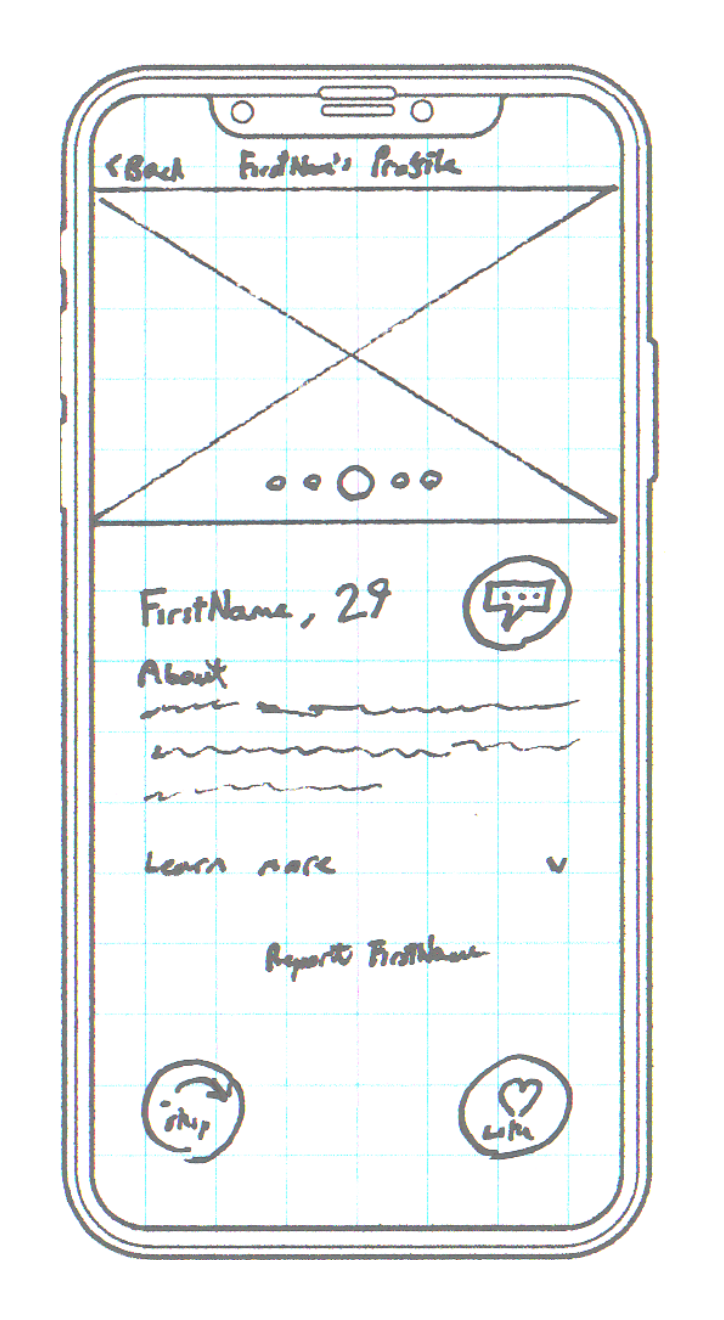 < Back FirstName's Profile
FirstName, 29
About
Learn more v
Report FirstName
Skip
Like